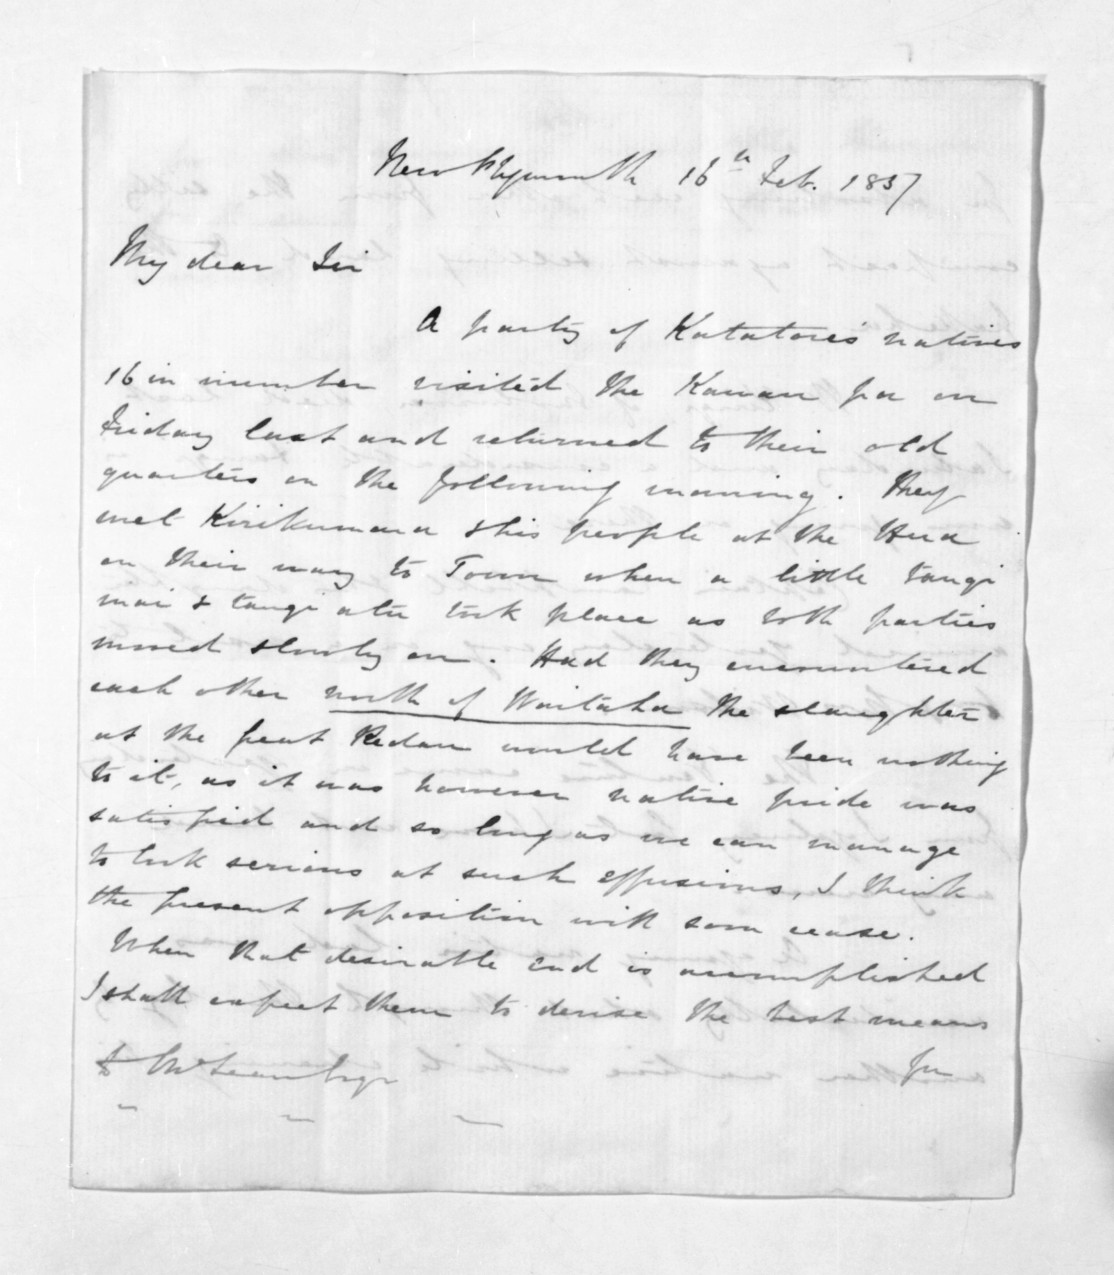 New Plymouth 16th Feb. 1857
My dear Sir
A party of Katatores' natives
16 in number visited the Kawau pa on
Friday last and returned to their old
quarters on the following morning. They
met Kirikumara & his people at the Hua
on their way to Town when a little tangi
mai & tangi atu took place as both parties
moved slowly on. Had they encountered
each other north of Waitaha the slaughter
at the great Redan would have been nothing
to it, as it was however native pride was
satisfied and so long as we can manage
to look serious at such effusions, I think
the present opposition will soon cease.
When that desirable end is accomplished
I shall expect them to devise the best means
for
D McLean Esqr